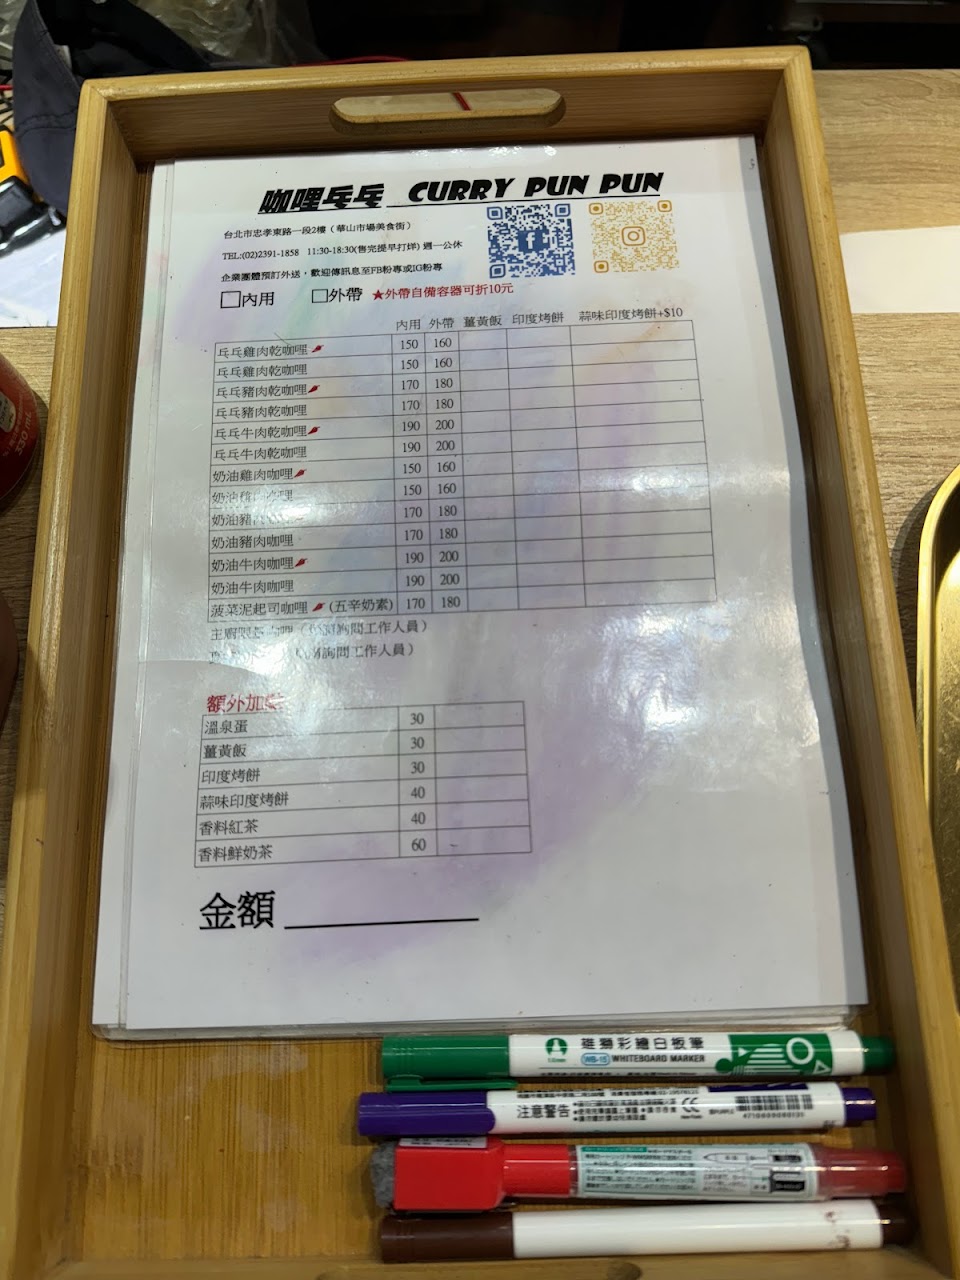 咖哩乓乓 CURRY PUN PUN
台北市忠孝東路一段2樓（華山市場美食街）
TEL:(02)2391-1858 11:30-18:30(售完提早打烊) 週一公休
企業團體預訂外送，歡迎傳訊息至FB粉專或IG粉專
□內用 □外帶 ★外帶自備容器可折10元
內用 外帶 薑黃飯 印度烤餅 蒜味印度烤餅+$10
乓乓雞肉乾咖哩 150 160
乓乓雞肉乾咖哩 150 160
乓乓豬肉乾咖哩 170 180
乓乓豬肉乾咖哩 170 180
乓乓牛肉乾咖哩 190 200
乓乓牛肉乾咖哩 190 200
奶油雞肉咖哩 150 160
奶油雞肉咖哩 150 160
奶油豬肉咖哩 170 180
奶油豬肉咖哩 170 180
奶油牛肉咖哩 190 200
奶油牛肉咖哩 190 200
菠菜泥起司咖哩 (五辛奶素) 170 180
詢問工作人員）
詢問工作人員）
額外加
溫泉蛋 30
薑黃飯 30
印度烤餅 30
蒜味印度烤餅 40
香料紅茶 40
香料鮮奶茶 60
金額
雄獅彩繪白板筆
WB-15 WHITEBOARD MARKER
注意警告
330 ml